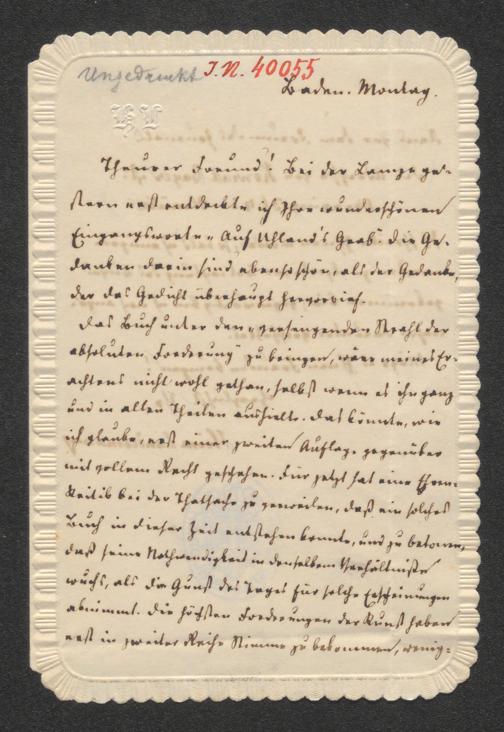 Ungedruckt I.N. 40055
Baden. Montag.
Theurer Freund! Bei der Lampe ge-
stern erst entdeckte ich Ihre wunderschönen
Eingangsworte „Auf Uhland's Grab“. Die Ge-
danken darin sind ebenso schön, als der Gedanke,
der das Gedicht überhaupt hervorrief.
Das Buch unter den „versengenden Strahl der
absoluten Forderung“ zu bringen, wäre meines Er-
achtens nicht wohl gethan, selbst wenn es ihn ganz
und in allen Theilen aushielte. Das könnte, wie
ich glaube, erst einer zweiten Auflage gegenüber
mit vollem Recht geschehen. Für jetzt hat eine
Kritik bei der Thatsache zu verweilen, daß ein solches
Buch in dieser Zeit entstehen konnte, und zu betonen,
daß seine Nothwendigkeit in demselben Verhältniße
wuchs, als die Gunst des Tages für solche Erscheinungen
abnimmt. Die höchsten Forderungen der Kunst haben
erst in zweiter Reihe Stimme zu bekommen, wenig-